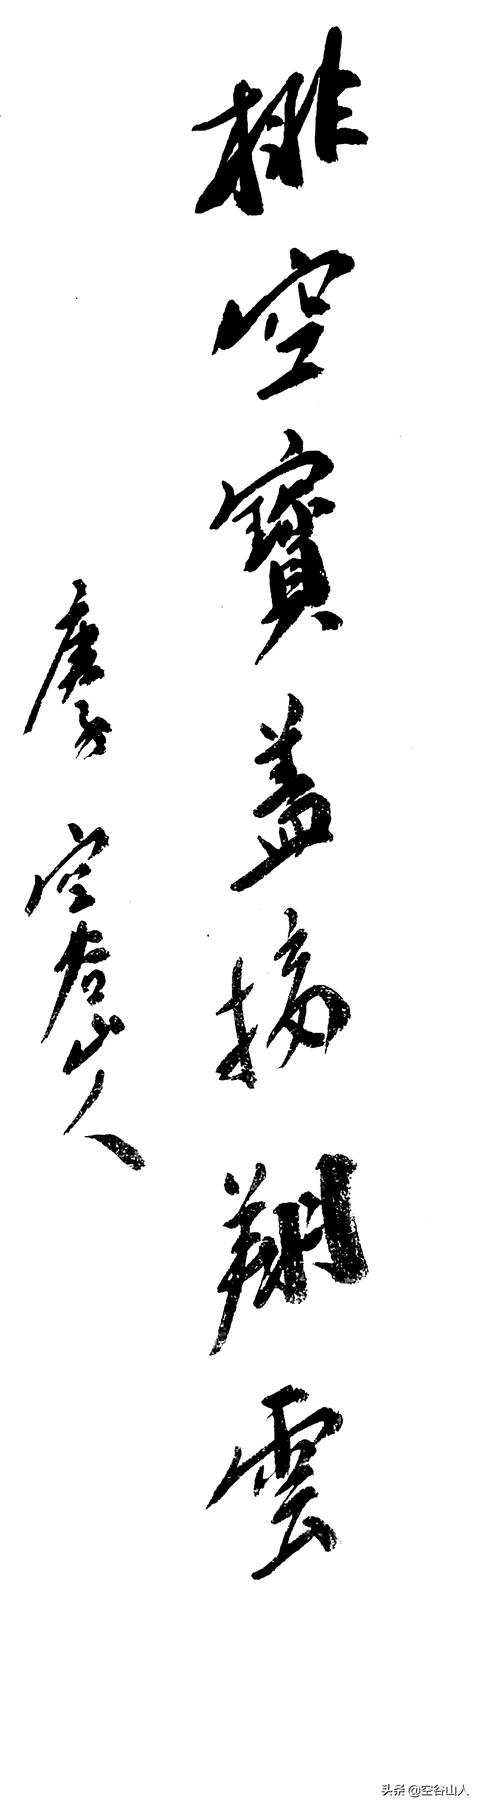 排空寶盖翔雲
庚子 空谷山人
头条 @空谷山人